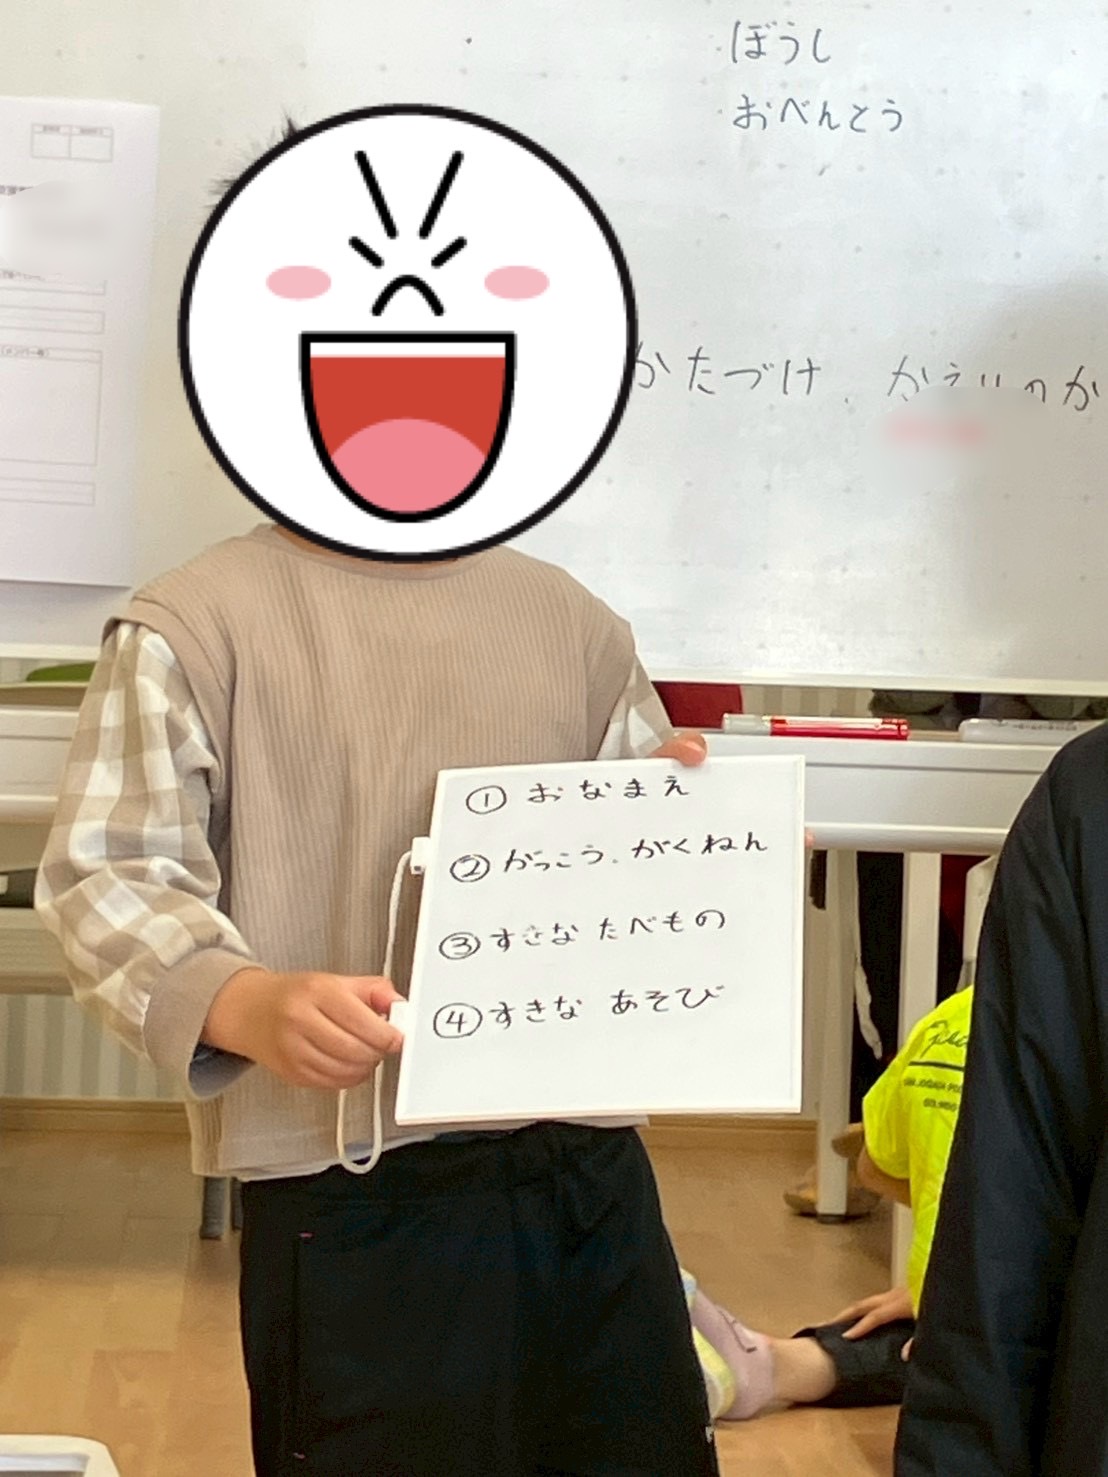 ぼうし
おべんとう
かたづけ、かえりのか
① おなまえ
② がっこう、がくねん
③ すきな たべもの
④ すきな あそび